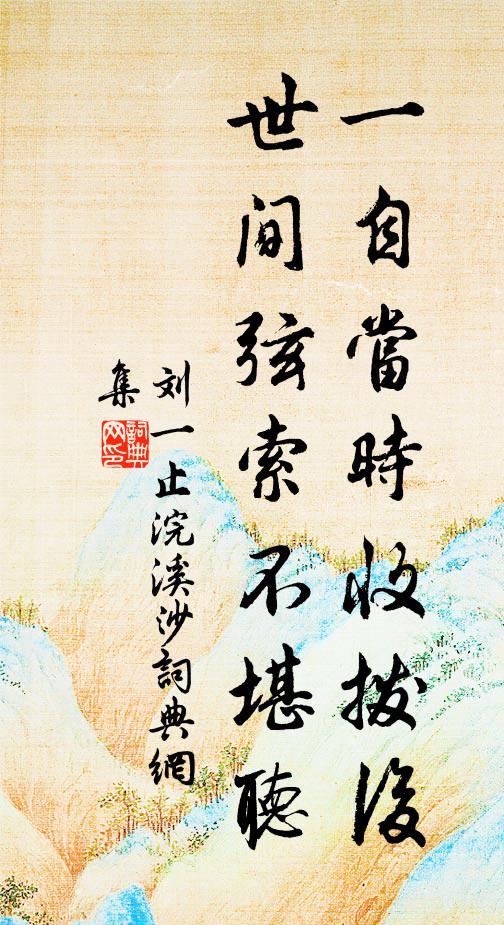 一自當時收拨後
世间弦索不堪聽
刘一止浣溪沙詞典網
集
詞典网印